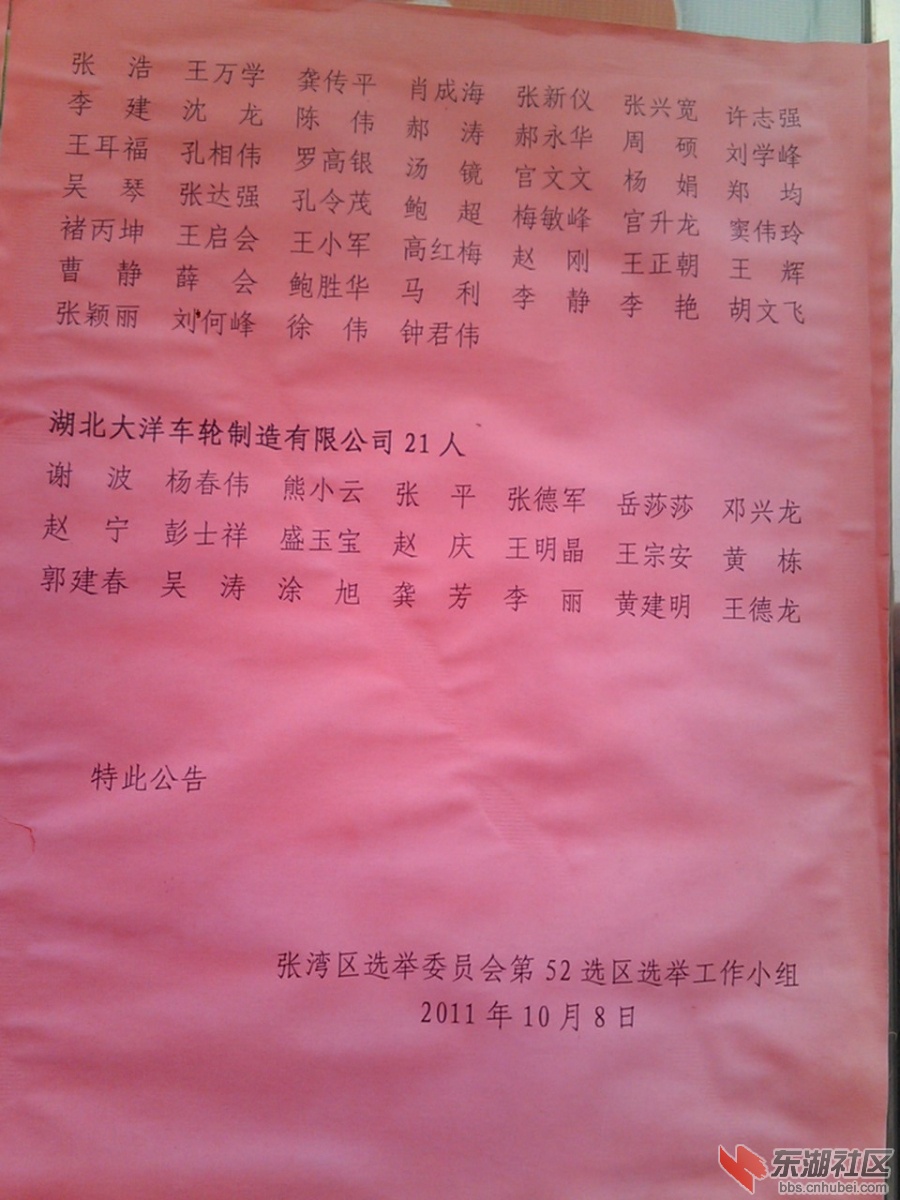 张浩 王万学 龚传平 肖成海 张新仪 张兴宽 许志强
李建 沈龙 陈伟 郝涛 郝永华 周硕 刘学峰
王耳福 孔相伟 罗高银 汤镜 官文文 杨娟 郑均
吴琴 张达强 孔令茂 鲍超 梅敏峰 宫升龙 窦伟玲
褚丙坤 王启会 王小军 高红梅 赵刚 王正朝 王辉
曹静 薛会 鲍胜华 马利 李静 李艳 胡文飞
张颖丽 刘何峰 徐伟 钟君伟
湖北大洋车轮制造有限公司21人
谢波 杨春伟 熊小云 张平 张德军 岳莎莎 邓兴龙
赵宁 彭士祥 盛玉宝 赵庆 王明晶 王宗安 黄栋
郭建春 吴涛 涂旭 龚芳 李丽 黄建明 王德龙
特此公告
张湾区选举委员会第52选区选举工作小组
2011年10月8日
东湖社区
bbs.cnhubei.com